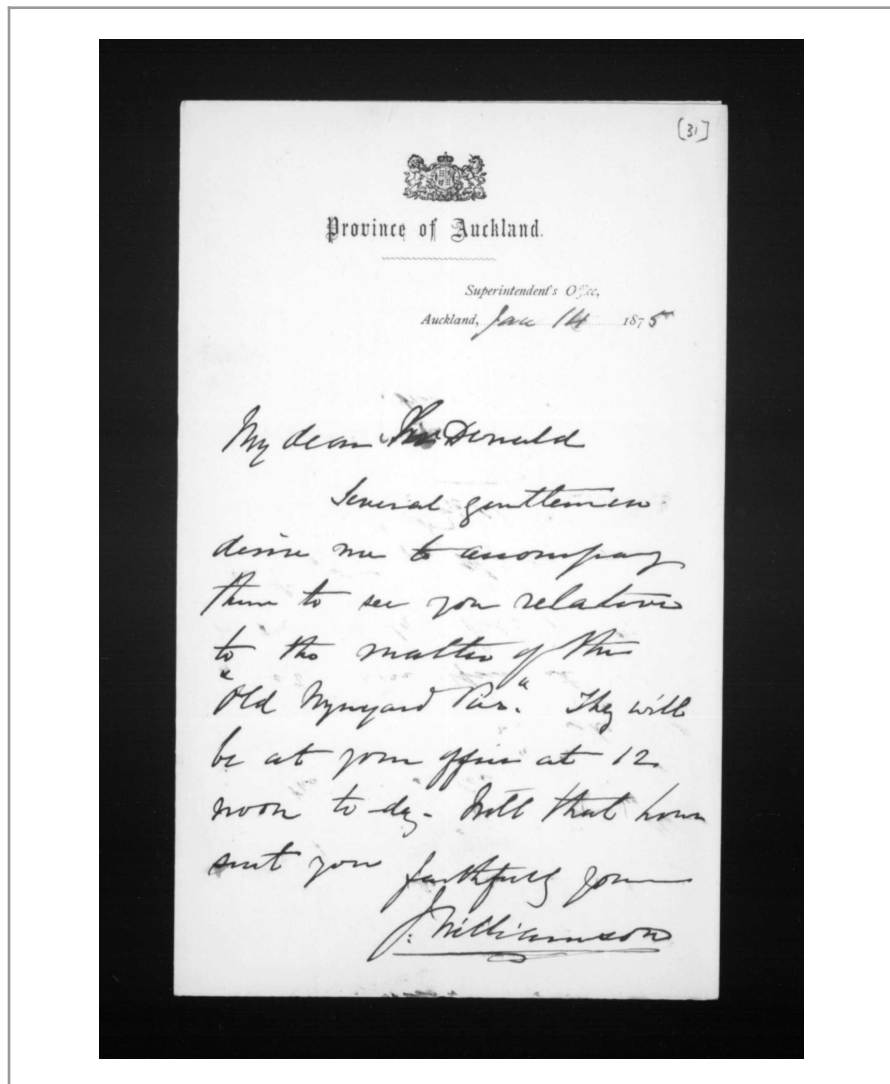 [31]
Province of Auckland.
Superintendent's Office,
Auckland, Jan 14 1875
My dear Sir Donald
Several gentlemen
desire me to accompany
them to see you relative
to the matter of the
"Old Wynyard Pier". They will
be at your office at 12
noon to-day - Will that hour
suit you
faithfully yours
J. Williamson